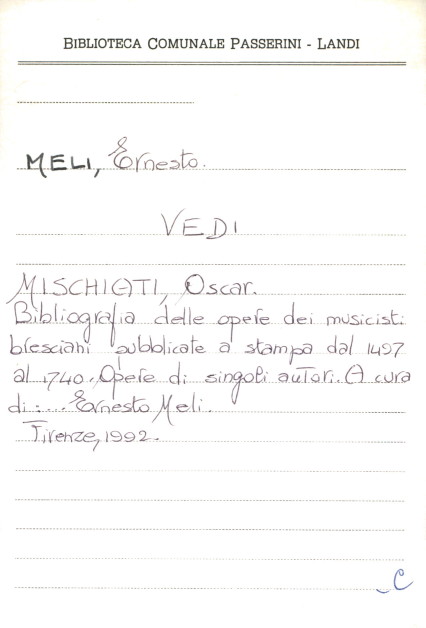 BIBLIOTECA COMUNALE PASSERINI - LANDI
MELI, Ernesto.
VEDI
MISCHIATI, Oscar.
Bibliografia delle opere dei musicisti
bresciani pubblicate a stampa dal 1497
al 1740. Opere di singoli autori. A cura
di:... Ernesto Meli.
Firenze, 1992.
C